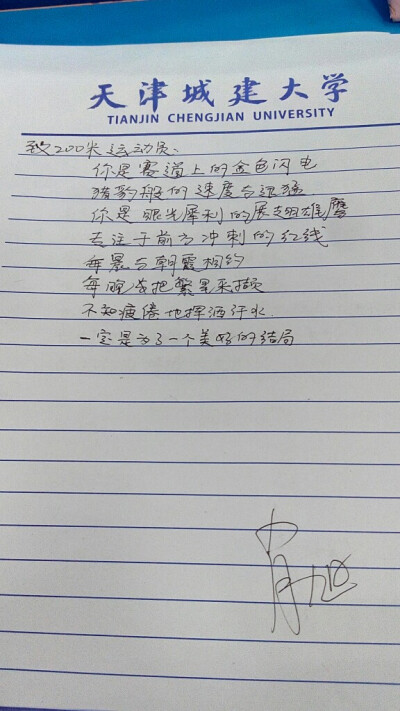 天津城建大学
TIANJIN CHENGJIAN UNIVERSITY
致200米运动员:
你是赛道上的金色闪电
猎豹般的速度台迅猛
你是眼光犀利的展翅雄鹰
专注于前方冲刺的红线
每晨与朝霞相约
每晚去把繁星采撷
不知疲倦地挥洒汗水
一定是为了一个美好的结局
肖旭